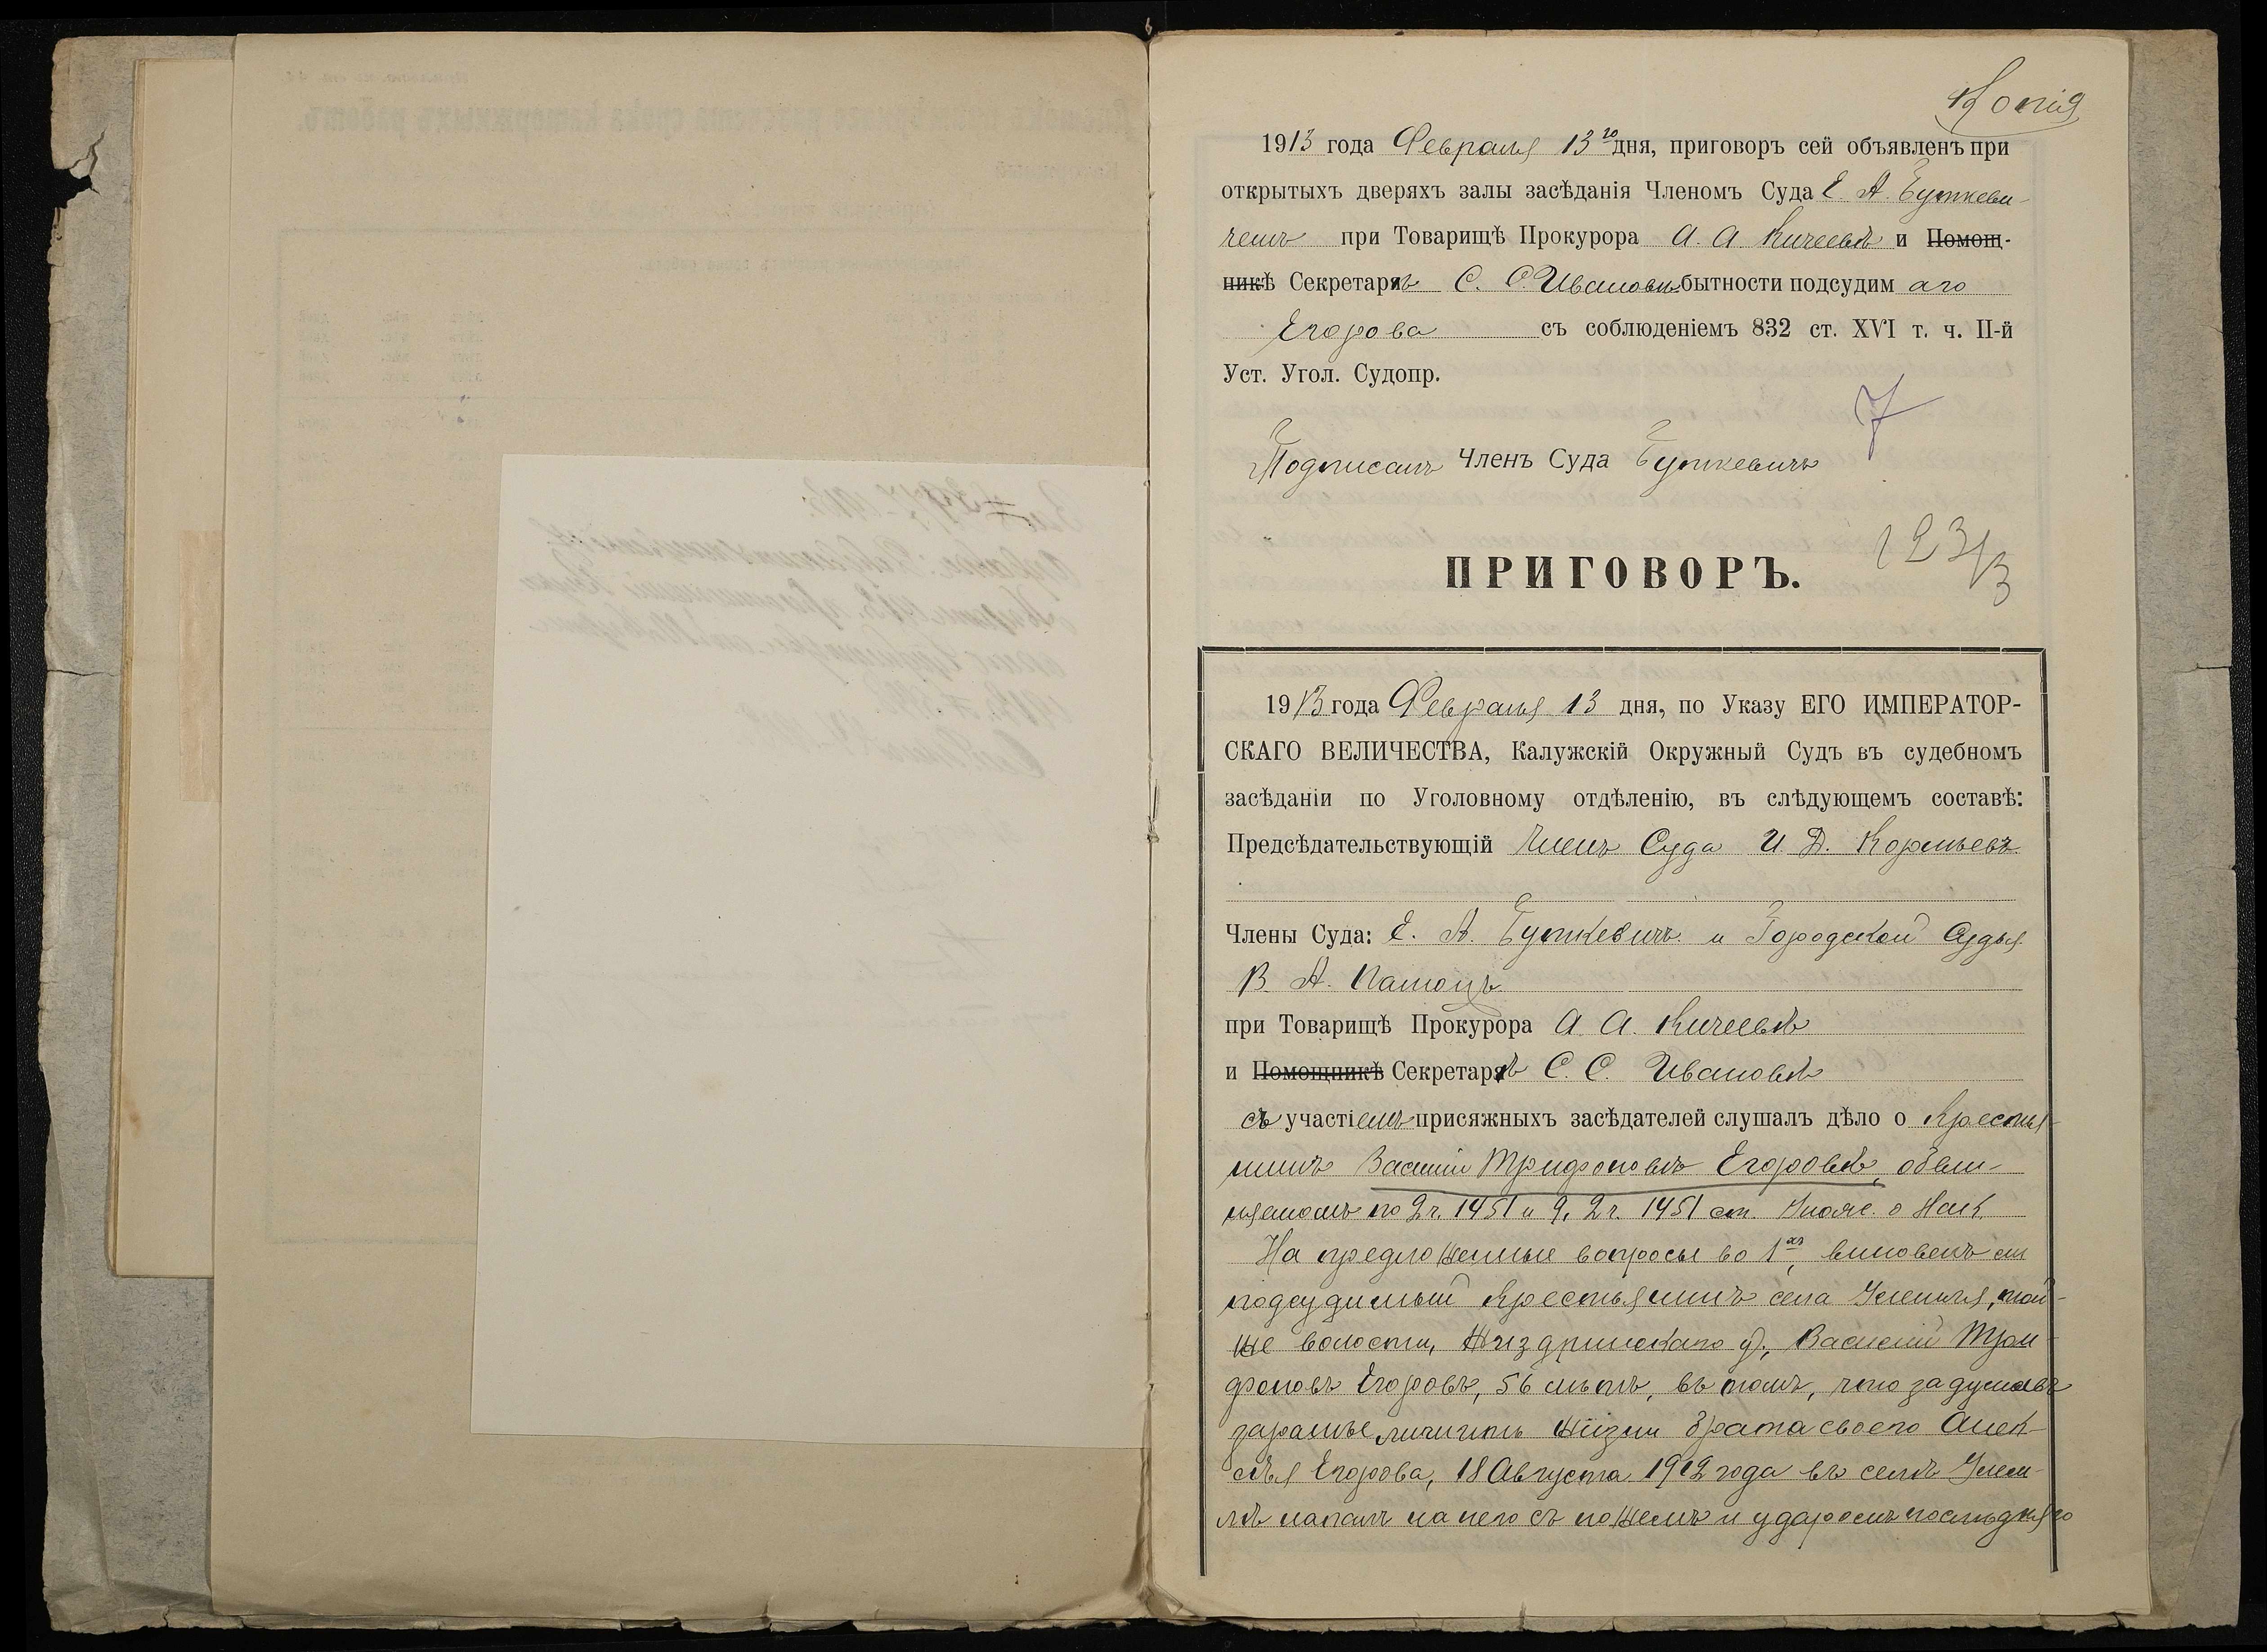 Копія
1913 года Февраля 13го дня, приговоръ сей объявленъ при
открытыхъ дверяхъ залы засѣданія Членомъ Суда Е. А. Буткеви-
чемъ при Товарищѣ Прокурора А. А. Кичеевѣ и Помощ-
никѣ Секретарѣ С. С. Ивановѣ бытности подсудимаго
Егорова съ соблюденіемъ 832 ст. XVI т. ч. II-й
Уст. Угол. Судопр.
7
Подписалъ Членъ Суда Буткевичъ
123/3
ПРИГОВОРЪ.
1913 года Февраля 13 дня, по Указу ЕГО ИМПЕРАТОР-
СКАГО ВЕЛИЧЕСТВА, Калужскій Окружный Судъ въ судебномъ
засѣданіи по Уголовному отдѣленію, въ слѣдующемъ составѣ:
Предсѣдательствующій Членъ Суда И. Д.
Члены Суда: Е. А. Буткевичъ и Городской Судья
В. А.
при Товарищѣ Прокурора А. А. Кичеевѣ
и Помощникѣ Секретарѣ С. С. Ивановѣ
съ участіемъ присяжныхъ засѣдателей слушалъ дѣло о Крестья-
нинѣ Василіи Трифоновѣ Егоровѣ, обви-
няемомъ по 2 ч. 1451 и 9, 2 ч. 1451 ст. Улож. о Нак.
На предложенные вопросы во 1хъ, виновенъ ли
подсудимый Крестьянинъ села той-
же волости, Жиздринскаго у., Василій Три-
фоновъ Егоровъ, 56 лѣтъ, въ томъ, что задумавъ
заранѣе лишить жизни брата своего Алек-
сѣя Егорова, 18 Августа 1912 года въ селѣ
напалъ на него съ ножемъ и ударомъ послѣдняго